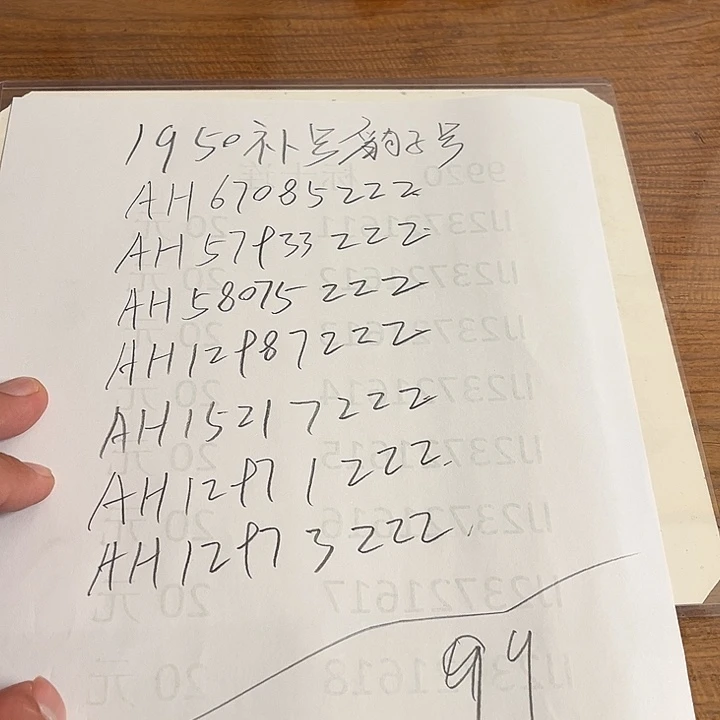 1950补号豹子号
AH67085222
AH57933222
AH58075222
AH12987222
AH15217222
AH12971222
AH12973222
99